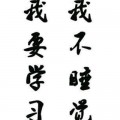 我不睡觉
我要学习